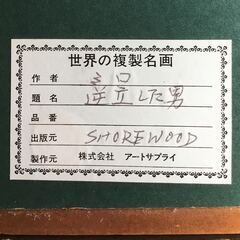 世界の複製名画
作者 ミロ
題名 逆立した男
品番
出版元 SHOREWOOD
製作元 株式会社 アートサプライ